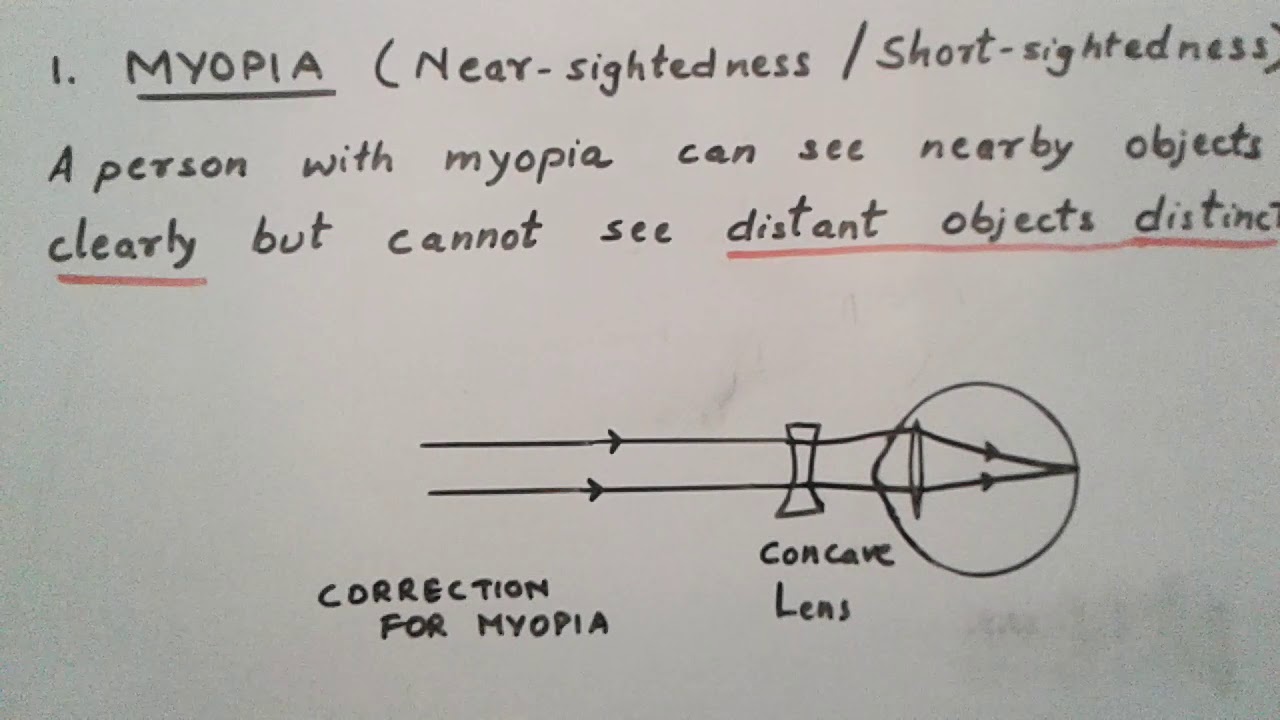 1. MYOPIA (Near-sightedness / Short-sightedness)
A person with myopia can see nearby objects
clearly but cannot see distant objects distinct
Concave
Lens
CORRECTION
FOR MYOPIA